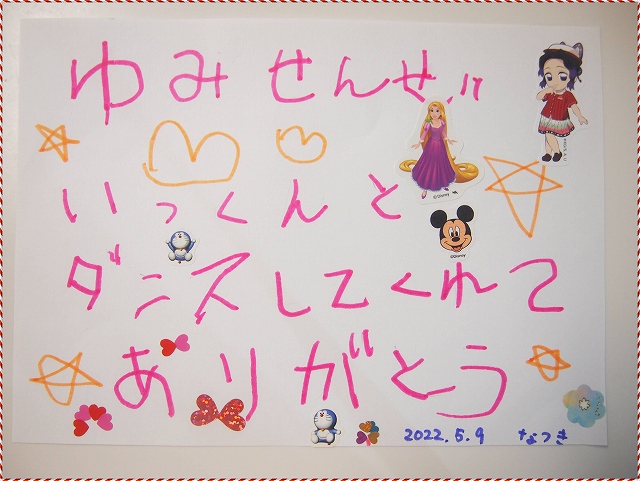 ゆみせんせい
いっくんと
ダンスしてくれて
ありがとう
2022.5.9 なつき
©Disney
©Disney